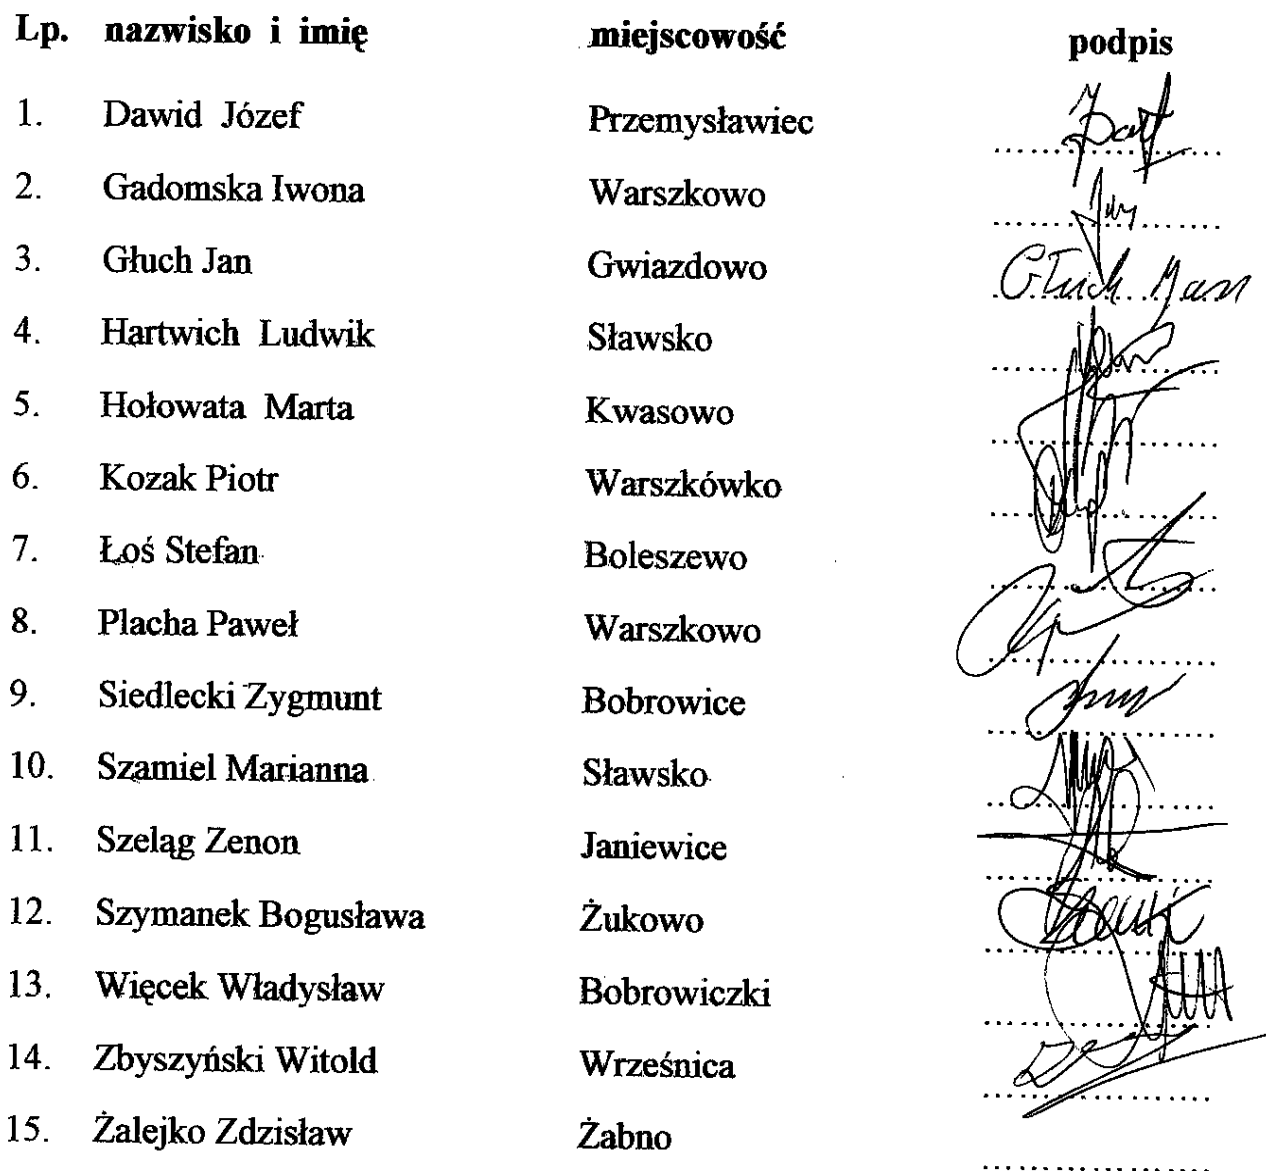 Lp. nazwisko i imię miejscowość podpis
1. Dawid Józef Przemysławiec
2. Gadomska Iwona Warszkowo
3. Głuch Jan Gwiazdowo Głuch Jan
4. Hartwich Ludwik Sławsko
5. Hołowata Marta Kwasowo
6. Kozak Piotr Warszkówko
7. Łoś Stefan Boleszewo
8. Placha Paweł Warszkowo
9. Siedlecki Zygmunt Bobrowice
10. Szamiel Marianna Sławsko
11. Szeląg Zenon Janiewice
12. Szymanek Bogusława Żukowo
13. Więcek Władysław Bobrowiczki
14. Zbyszyński Witold Wrześnica
15. Żalejko Zdzisław Żabno